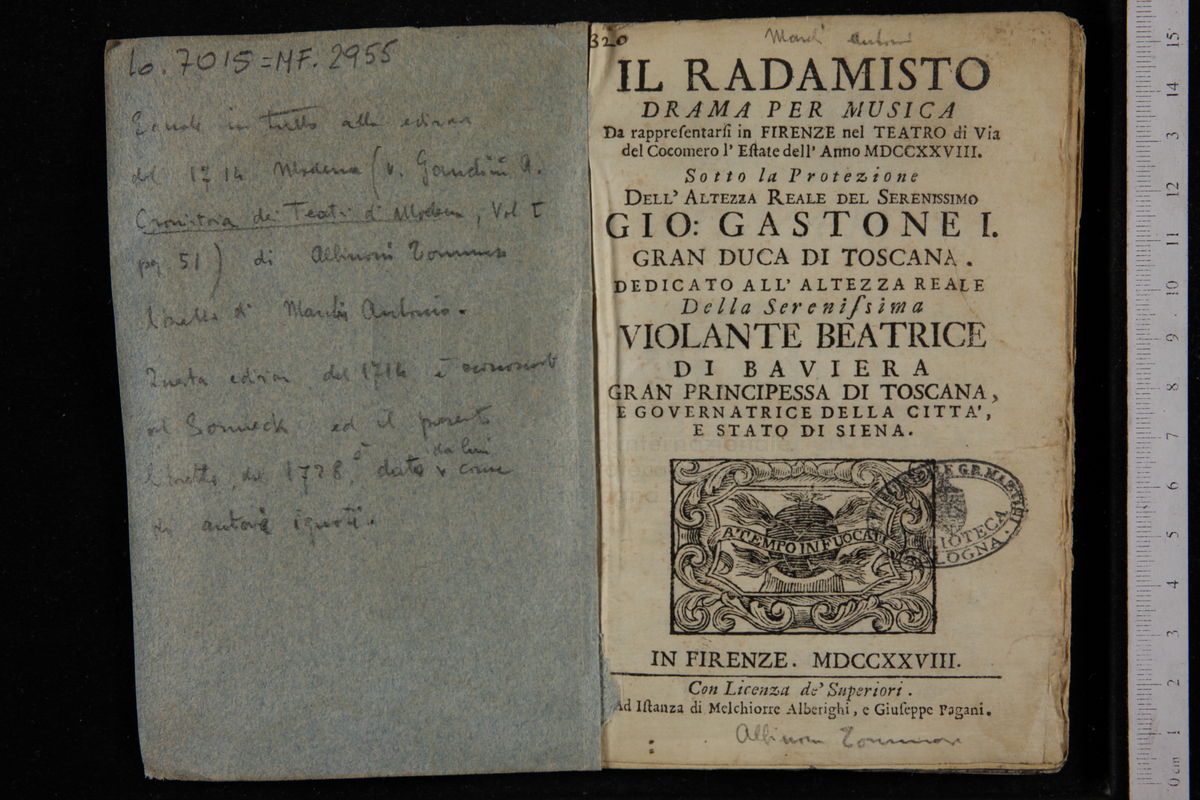 Lo. 7015 = MF. 2955
in tutto alla
del 1714 Modena (v. Gandini A.
Cronistoria dei Teatri di Modena, Vol I
pg. 51) di Albinoni Tommaso
libretto di Marchi Antonio.
Questa del 1714 è
al Sonneck ed il presente
libretto del 1728 è dato da lui come
di autori ignoti.
320
Marchi Antonio
IL RADAMISTO
DRAMA PER MUSICA
Da rappreſentarſi in FIRENZE nel TEATRO di Via
del Cocomero l' Eſtate dell' Anno MDCCXXVIII.
Sotto la Protezione
DELL' ALTEZZA REALE DEL SERENISSIMO
GIO: GASTONE I.
GRAN DUCA DI TOSCANA.
DEDICATO ALL' ALTEZZA REALE
Della Sereniſſima
VIOLANTE BEATRICE
DI BAVIERA
GRAN PRINCIPESSA DI TOSCANA,
E GOVERNATRICE DELLA CITTA',
E STATO DI SIENA.
A TEMPO INFUOCATI
IN FIRENZE. MDCCXXVIII.
Con Licenza de' Superiori.
Ad Iſtanza di Melchiorre Alberighi, e Giuſeppe Pagani.
Albinoni Tommaso
0 cm 1 2 3 4 5 6 7 8 9 10 11 12 13 14 15